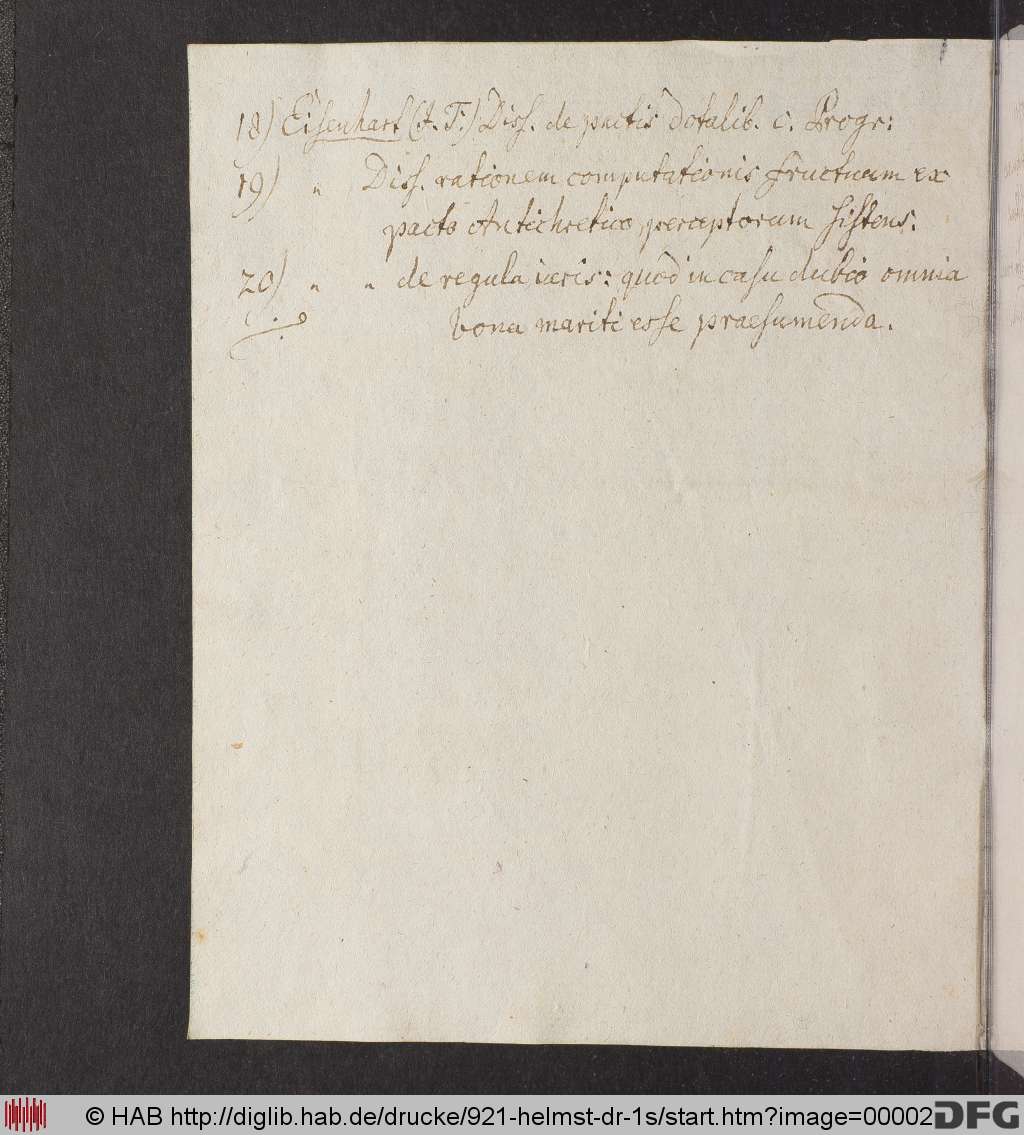 18) Eisenhart (J. F.) Diss. de pactis dotalib. c. Progr:
19) " Diss. rationem computationis fructuum ex
pacto Antichretico perceptorum sistens.
20) " " de regula iuris: quod in casu dubio omnia
bona mariti esse praesumenda.
© HAB http://diglib.hab.de/drucke/921-helmst-dr-1s/start.htm?image=00002
DFG